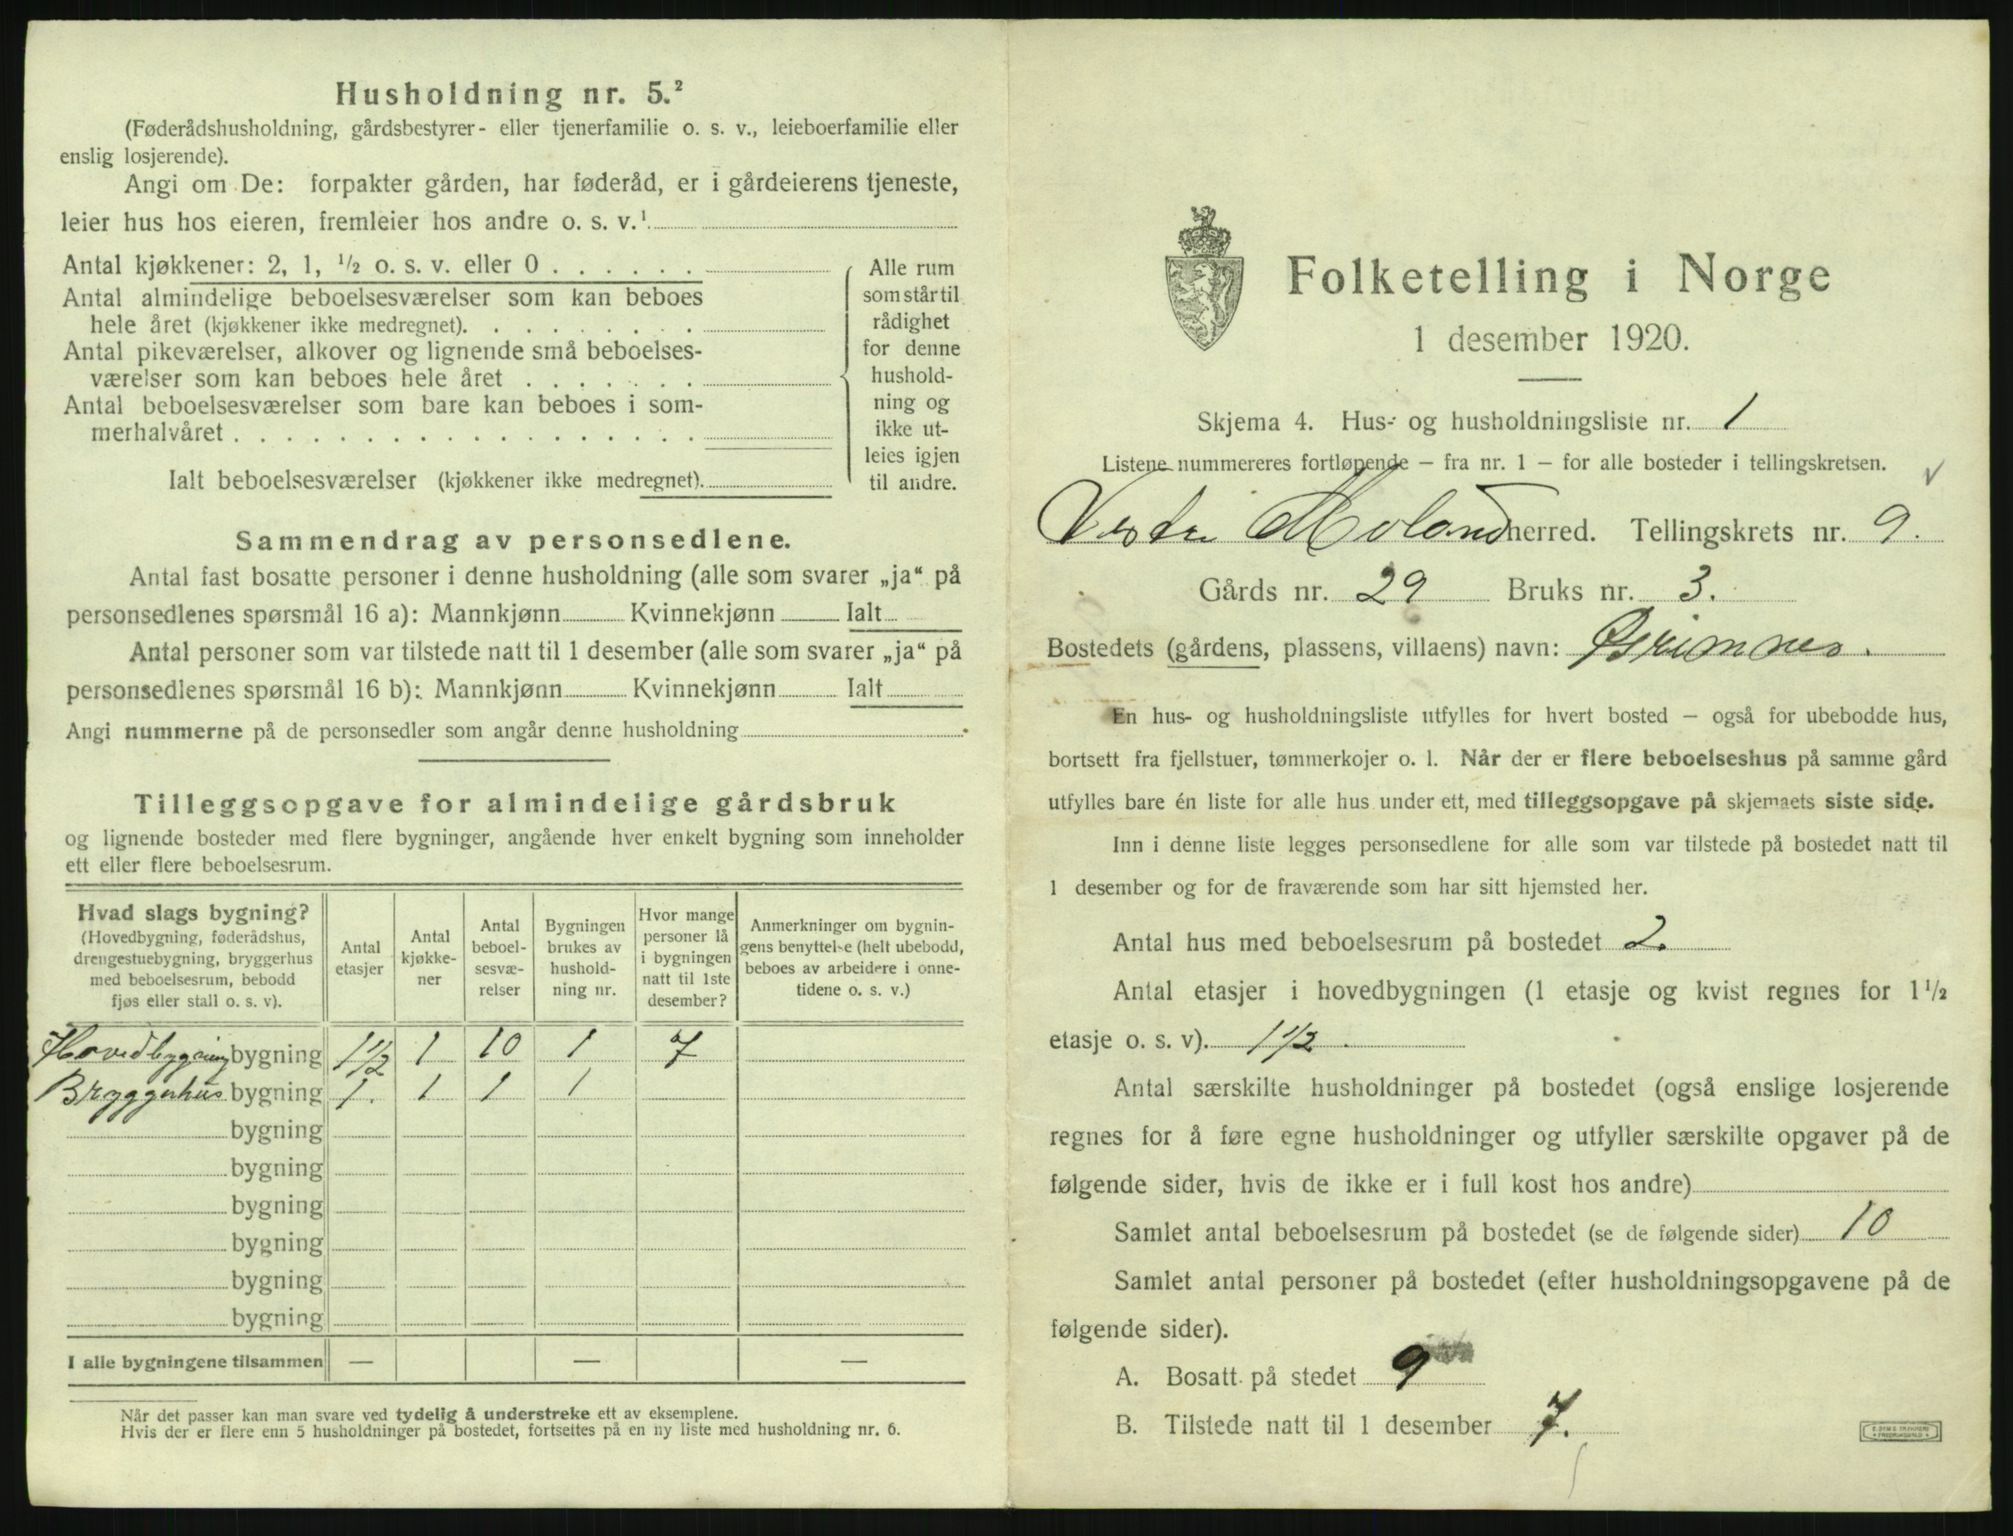 Husholdning nr. 5.²
(Føderådshusholdning, gårdsbestyrer- eller tjenerfamilie o. s. v., leieboerfamilie eller
enslig losjerende).
Angi om De: forpakter gården, har føderåd, er i gårdeierens tjeneste,
leier hus hos eieren, fremleier hos andre o. s. v.¹
Antal kjøkkener: 2, 1, ½ o. s. v. eller 0
Antal almindelige beboelsesværelser som kan beboes
hele året (kjøkkener ikke medregnet).
Antal pikeværelser, alkover og lignende små beboelses-
værelser som kan beboes hele året
Antal beboelsesværelser som bare kan beboes i som-
merhalvåret
Ialt beboelsesværelser (kjøkkener ikke medregnet).
Alle rum
som står til
rådighet
for denne
hushold-
ning og
ikke ut-
leies igjen
til andre.
Sammendrag av personsedlene.
Antal fast bosatte personer i denne husholdning (alle som svarer „ja“ på
personsedlenes spørsmål 16 a): Mannkjønn Kvinnekjønn Ialt
Antal personer som var tilstede natt til 1 desember (alle som svarer „ja“ på
personsedlenes spørsmål 16 b): Mannkjønn Kvinnekjønn Ialt
Angi nummerne på de personsedler som angår denne husholdning
Tilleggsopgave for almindelige gårdsbruk
og lignende bosteder med flere bygninger, angående hver enkelt bygning som inneholder
ett eller flere beboelsesrum.
Hvad slags bygning?
(Hovedbygning, føderådshus,
drengestuebygning, bryggerhus
med beboelsesrum, bebodd
fjøs eller stall o. s. v).
Antal
etasjer
Antal
kjøkke-
ner
Antal
beboel-
sesvæ-
relser
Bygningen
brukes av
hushold-
ning nr.
Hvor mange
personer lå
i bygningen
natt til 1ste
desember?
Anmerkninger om bygnin-
gens benyttelse (helt ubebodd,
beboes av arbeidere i onne-
tidene o. s. v.)
Hovedbygning bygning 1½ 1 10 1 7
Bryggerhus bygning 1. 1 1 1
bygning
bygning
bygning
bygning
bygning
bygning
I alle bygningene tilsammen — — —
Når det passer kan man svare ved tydelig å understreke ett av eksemplene.
Hvis der er flere enn 5 husholdninger på bostedet, fortsettes på en ny liste med husholdning nr. 6.
Folketelling i Norge
1 desember 1920.
Skjema 4. Hus- og husholdningsliste nr. 1
Listene nummereres fortløpende – fra nr. 1 – for alle bosteder i tellingskretsen.
Vestre Moland herred. Tellingskrets nr. 9.
Gårds nr. 29 Bruks nr. 3.
Bostedets (gårdens, plassens, villaens) navn: Grimnes.
En hus- og husholdningsliste utfylles for hvert bosted – også for ubebodde hus,
bortsett fra fjellstuer, tømmerkojer o. l. Når der er flere beboelseshus på samme gård
utfylles bare én liste for alle hus under ett, med tilleggsopgave på skjemaets siste side.
Inn i denne liste legges personsedlene for alle som var tilstede på bostedet natt til
1 desember og for de fraværende som har sitt hjemsted her.
Antal hus med beboelsesrum på bostedet 2.
Antal etasjer i hovedbygningen (1 etasje og kvist regnes for 1½
etasje o. s. v). 1½.
Antal særskilte husholdninger på bostedet (også enslige losjerende
regnes for å føre egne husholdninger og utfyller særskilte opgaver på de
følgende sider, hvis de ikke er i full kost hos andre)
Samlet antal beboelsesrum på bostedet (se de følgende sider) 10
Samlet antal personer på bostedet (efter husholdningsopgavene på de
følgende sider).
A. Bosatt på stedet 9
B. Tilstede natt til 1 desember 7.